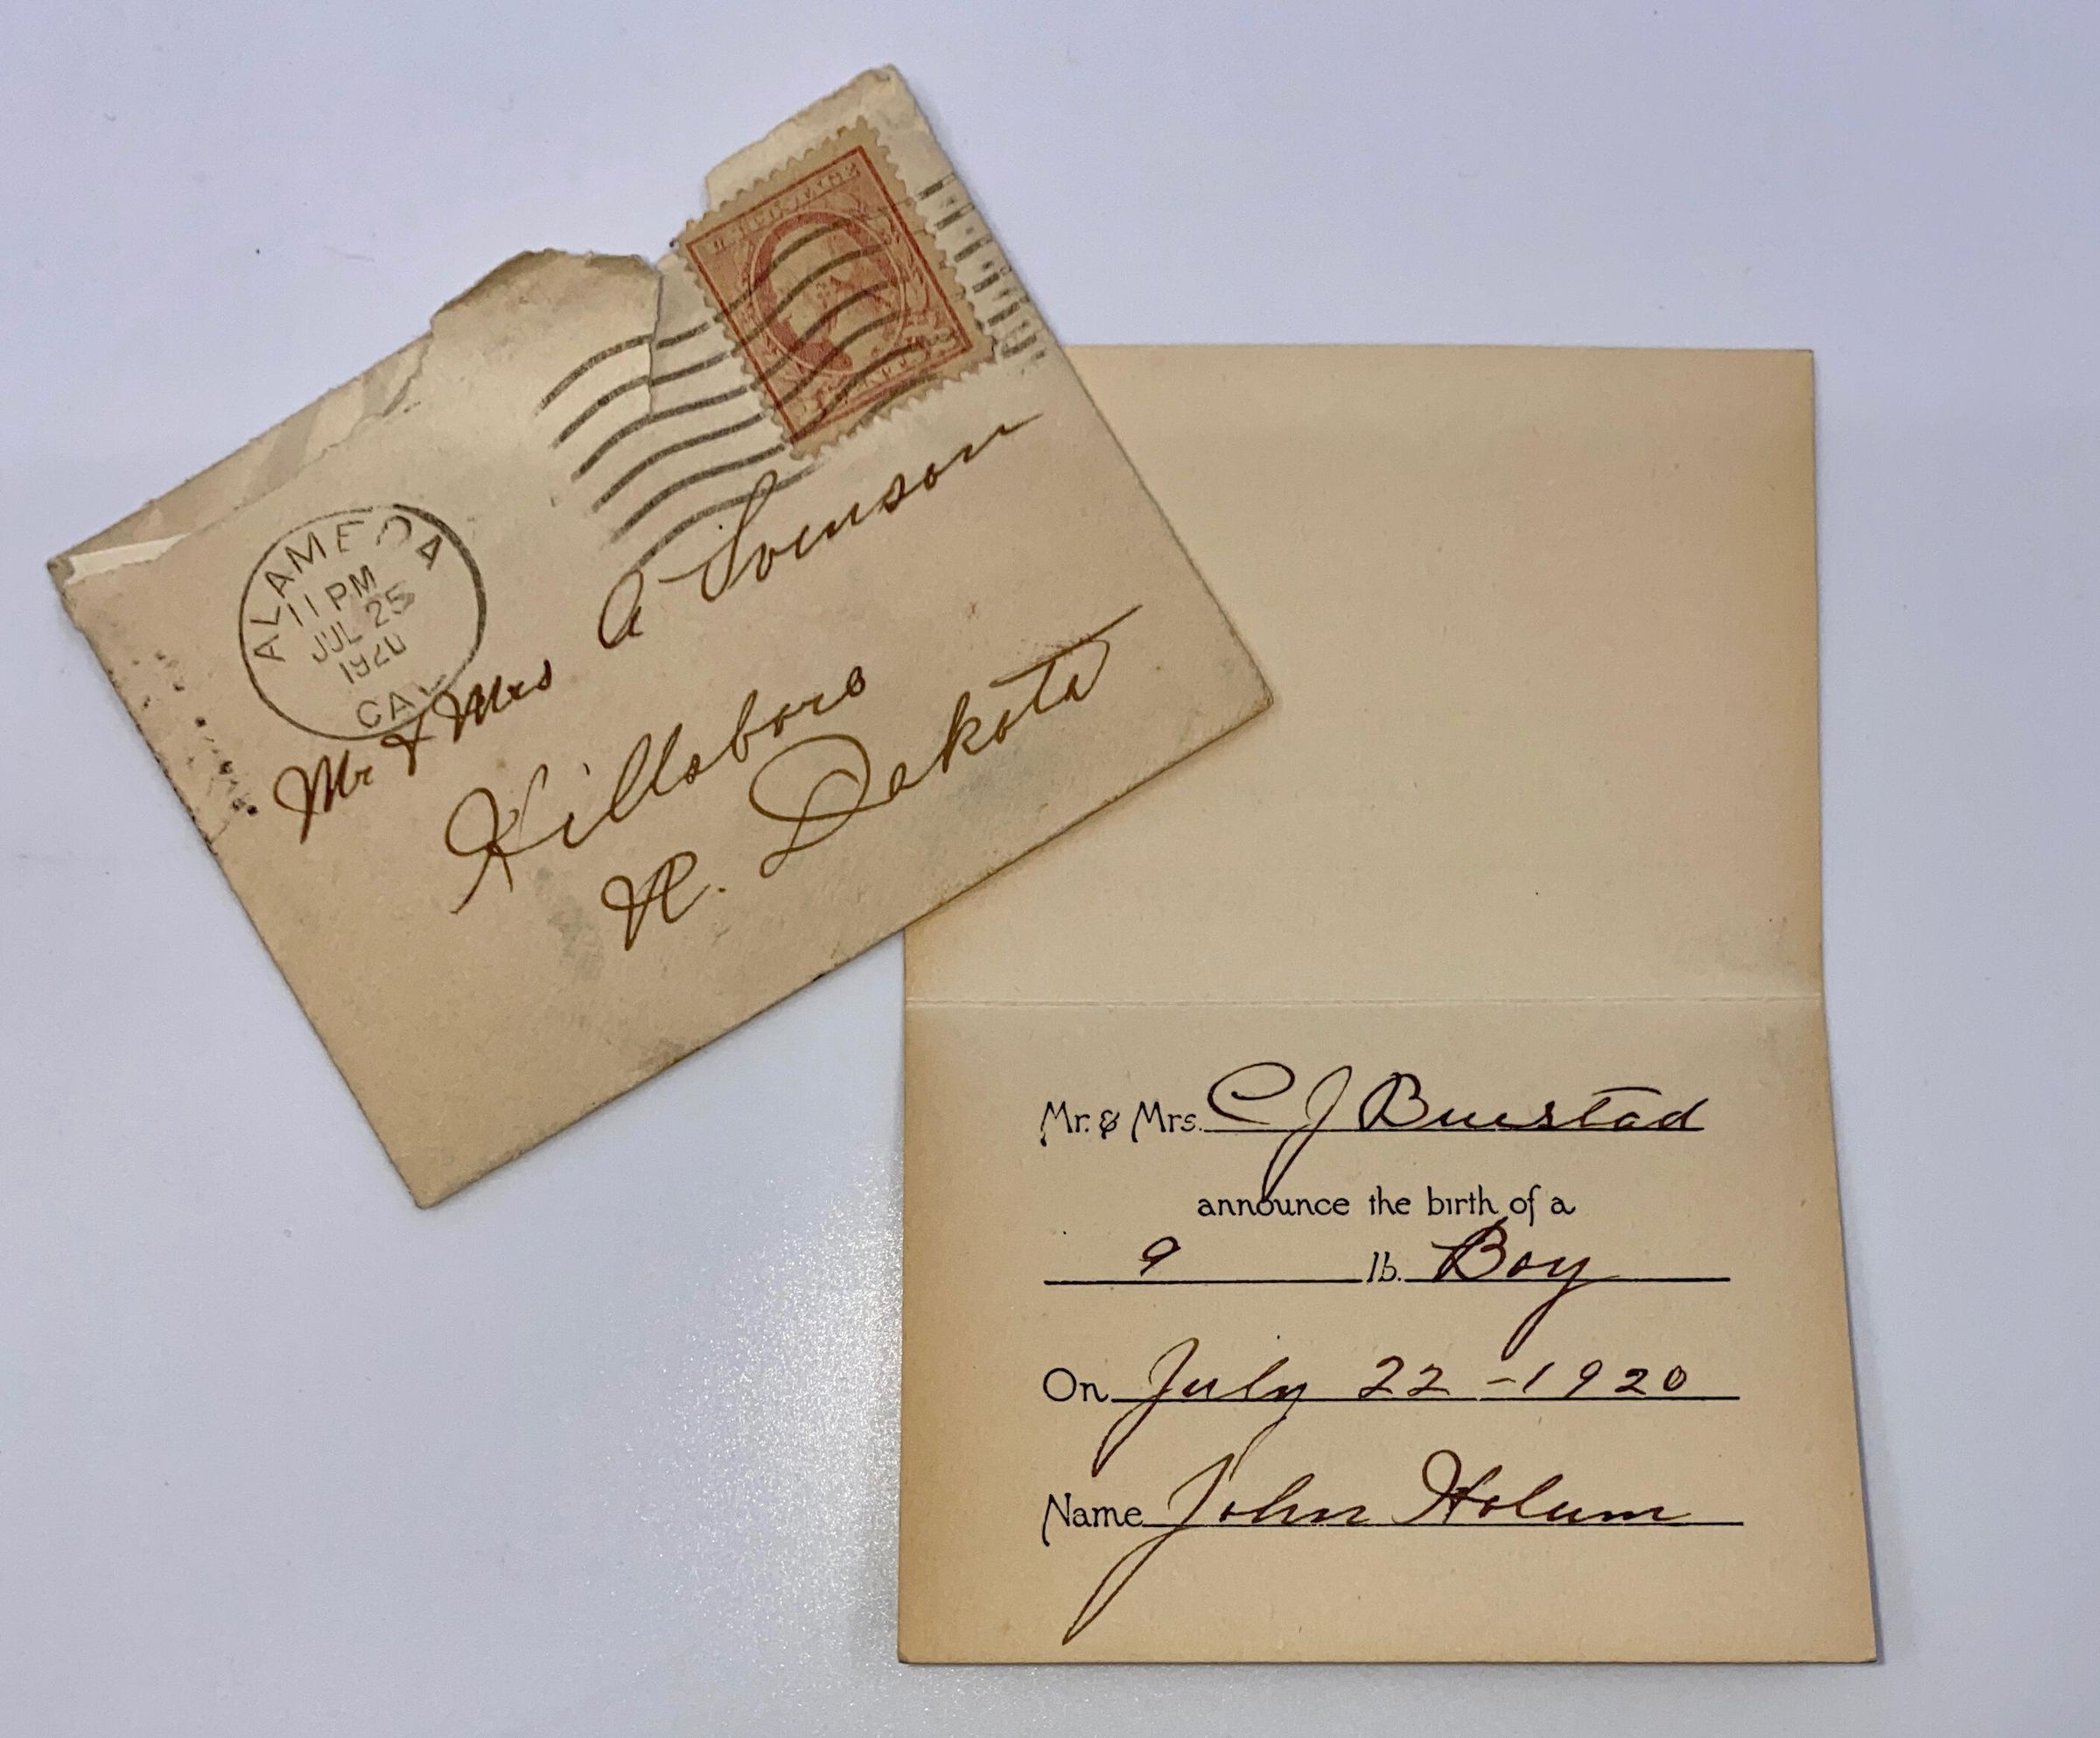 ALAMEDA
11 PM
JUL 25
1920
CAL
Mr & Mrs A Svenson
Hillsboro
N. Dakota
Mr. & Mrs. C J Buestad
announce the birth of a
9 lb. Boy
On July 22 - 1920
Name John Holum